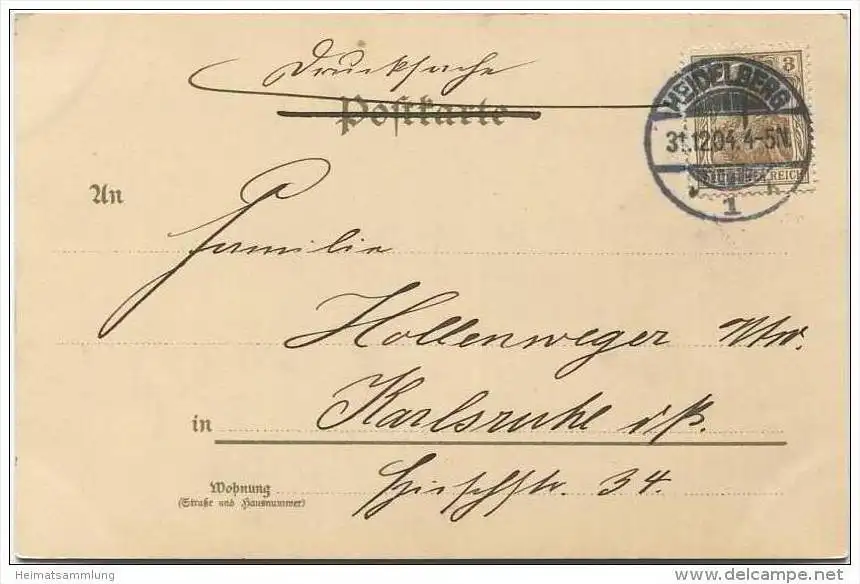 Drucksache
Postkarte
3
HEIDELBERG
31.12.04. 4-5N.
1
REICH
An
Familie
Hollenweger Wtw.
in Karlsruhe i/B.
Wohnung Hirschstr. 34.
(Straße und Hausnummer)
Heimatsammlung
©delcampe.net